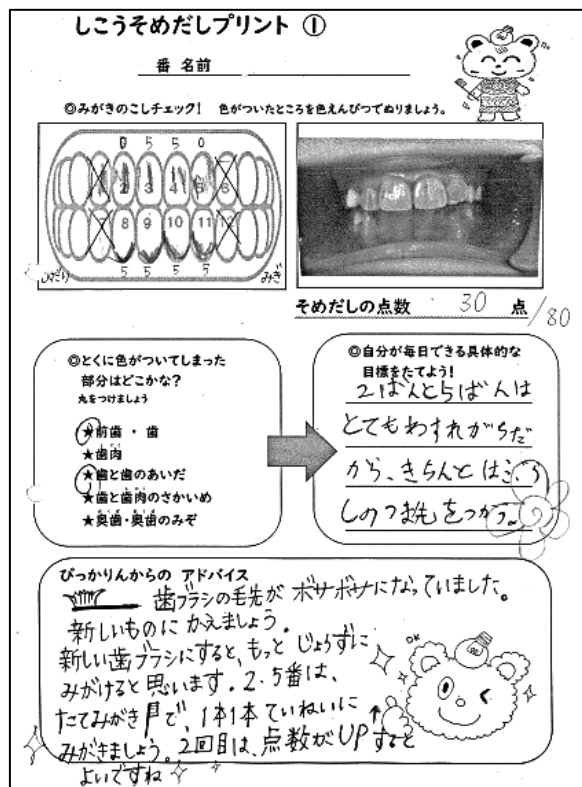 しこうそめだしプリント ①
番 名前
◎みがきのこしチェック! 色がついたところを色えんぴつでぬりましょう。
0 5 5 0
2 3 4 5 6
7 8 9 10 11 12
5 5 5 5
ひだり みぎ
そめだしの点数 30 点/80
◎とくに色がついてしまった
部分はどこかな?
丸をつけましょう
★前歯・歯
★歯肉
★歯と歯のあいだ
★歯と歯肉のさかいめ
★奥歯・奥歯のみぞ
◎自分が毎日できる具体的な
目標をたてよう!
2ばんと5ばんは
とてもわすれがちだ
から、きちんとはぶら
しのつま先をつかう。
ぴっかりんからの アドバイス
歯ブラシの毛先が ボサボサになっていました。
新しいものに かえましょう。
新しい歯ブラシにすると、もっと じょうずに
みがけると思います。2・5番は、
たてみがきで、1本1本ていねいに
みがきましょう。2回目は、点数がUPすると
よいですね
OK